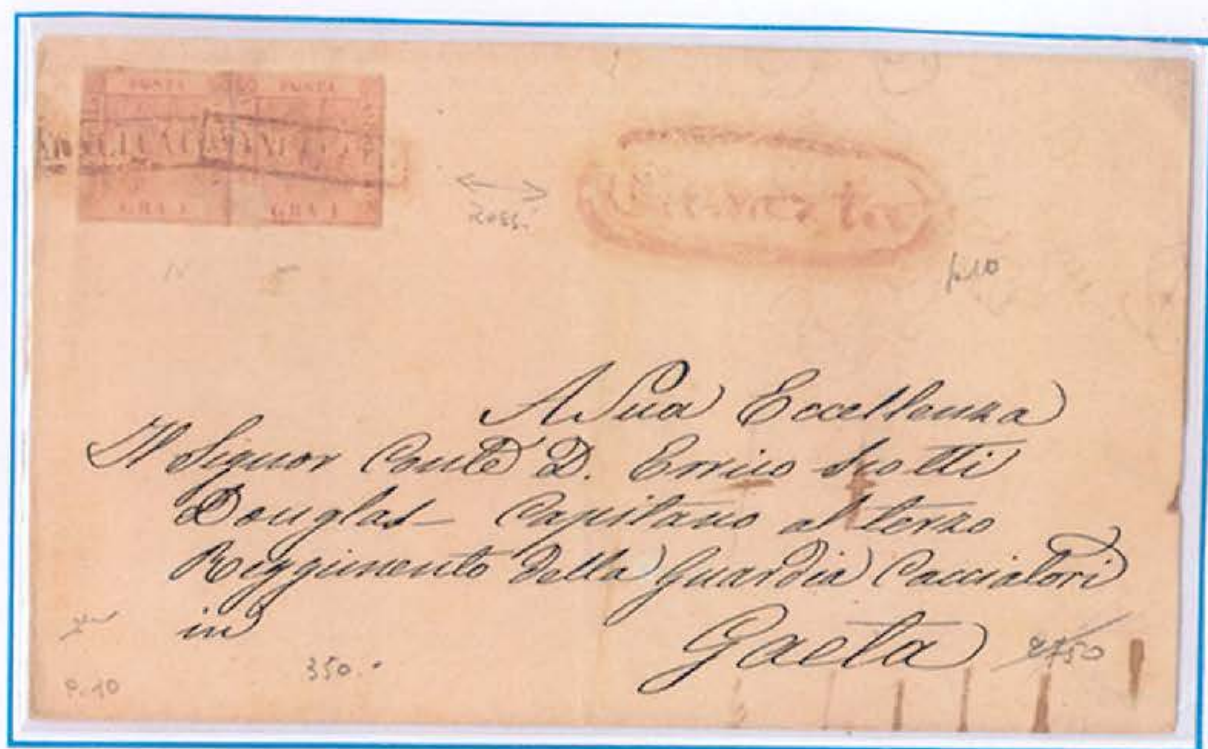 POSTA POSTA
ANNULLATO ANNULLATO
GRA 1 GRA 1
Rossi
A Sua Eccellenza
Il Signor Conte D. Enrico Scotti
Douglas - Capitano al terzo
Reggimento della Guardia Cacciatori
in
Gaeta 2750
350.-
P. 10